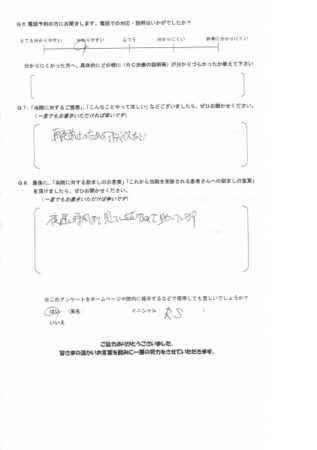 Q6.電話予約の方にお聞きします。電話での対応・説明はいかがでしたか?
とても分かりやすい 分かりやすい ふつう 分かりにくい 非常に分かりにくい
分かりにくかった方へ、具体的にどの様に(RC治療の説明等)が分かりづらかったか教えて下さい
Q7.「当院に対するご感想」、「こんなことやってほしい」などございましたら、ぜひお聞かせください。
(一言でもお書きいただければ幸いです)
再発防止のための
Q8.最後に、「当院に対する励ましのお言葉」「これから当院を受診される患者さんへの励ましの言葉」
を頂けましたら、ぜひお聞かせください。
(一言でもお書きいただければ幸いです)
夜遅い時間まで
※このアンケートをホームページや院内に掲示するなどで使用しても宜しいでしょうか?
はい (実名: イニシャル: R.S )
いいえ
ご協力ありがとうございました。
皆さまの温かいお言葉を励みに一層の努力をさせていただきます。